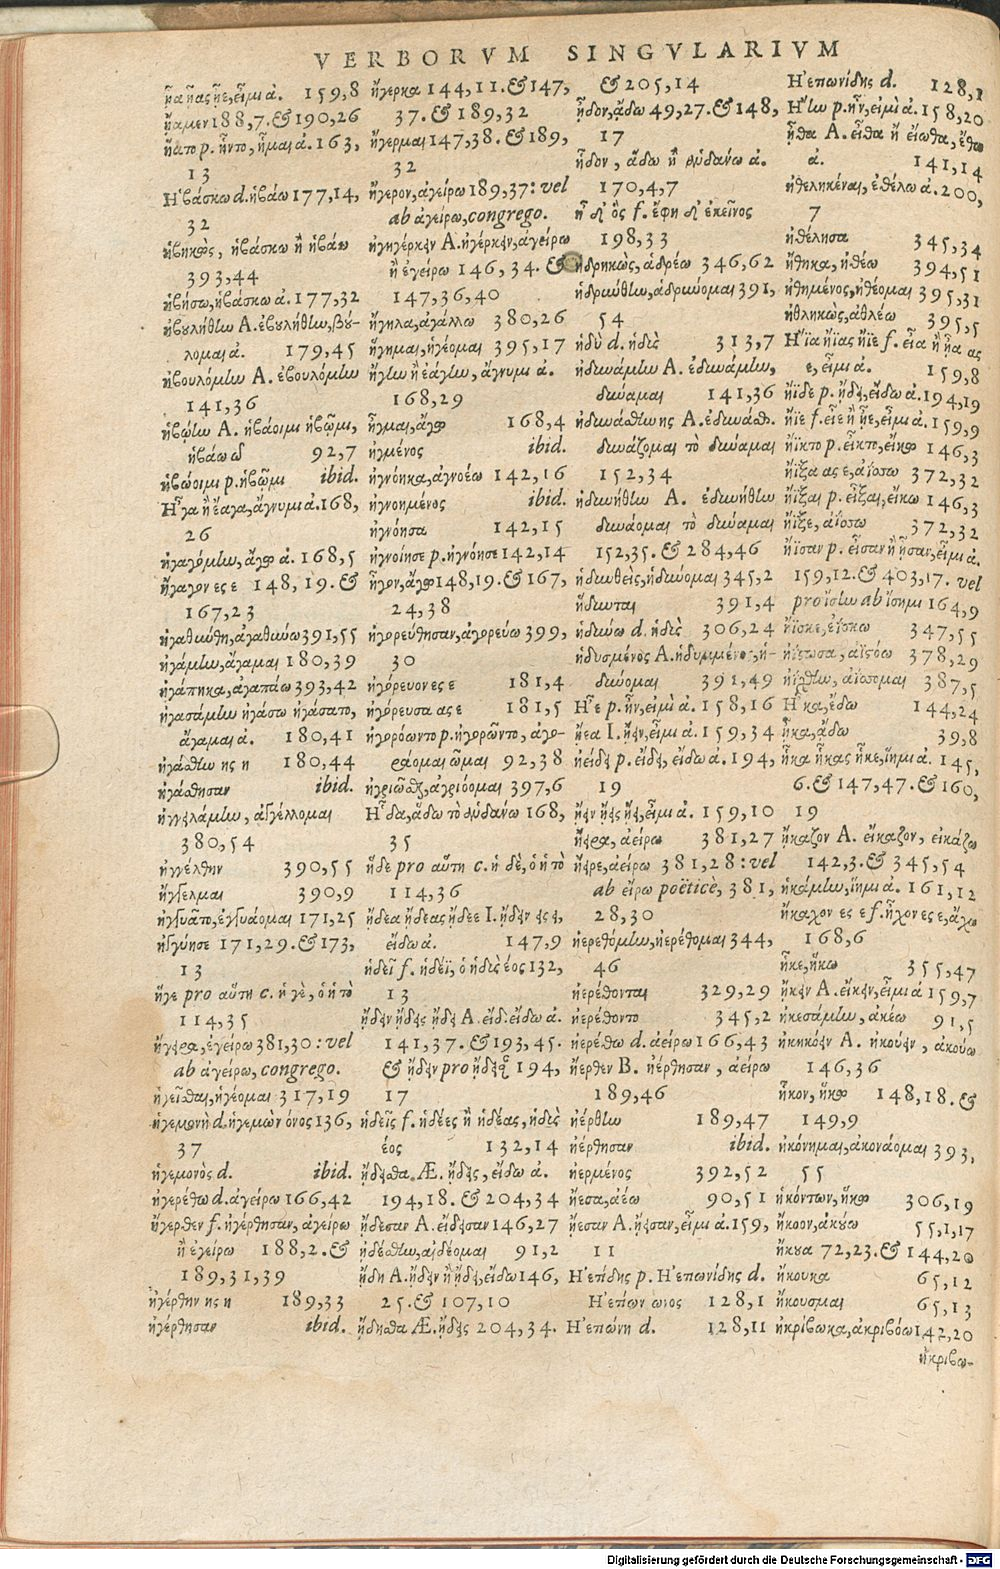 VERBORVM SINGVLARIVM
ᾖα ᾖας ᾖε, εἶμι ἀ. 159,8
ᾔαμεν 188,7. & 190,26
ᾔατο p. ἧντο, ἧμαι ἀ. 163,
13
Ἡβάσκω d. ἡβάω 177,14,
32
ἡβηκὼς, ἡβάσκω ἢ ἡβάω
393,44
ἡβήσω, ἡβάσκω ἀ. 177,32
ἠβουλήθην A. ἐβουλήθην, βού-
λομαι ἀ. 179,45
ἠβουλόμην A. ἐβουλόμην
141,36
ἡβῴην A. ἡβάοιμι ἡβῷμι,
ἡβάω 92,7
ἡβώοιμι p. ἡβῷμι ibid.
Ἦγα ἢ ἔαγα, ἄγνυμι ἀ. 168,
26
ἠγαγόμην, ἄγω ἀ. 168,5
ἤγαγον ες ε 148,19. &
167,23
ἠγαθύνθη, ἀγαθύνω 391,55
ἠγάμην, ἄγαμαι 180,39
ἠγάπηκα, ἀγαπάω 393,42
ἠγασάμην ἠγάσω ἠγάσατο,
ἄγαμαι ἀ. 180,41
ἠγάσθην ης η 180,44
ἠγάσθησαν ibid.
ἠγγειλάμην, ἀγγέλλομαι
380,54
ἠγγέλθην 390,55
ἤγγελμαι 390,9
ἠγγυᾶτο, ἐγγυάομαι 171,25
ἠγγύησε 171,29. & 173,
13
ἥγε pro αὕτη c. ἡ γὲ, ὁ ἡ τὸ
114,35
ἤγειρα, ἐγείρω 381,30: vel
ab ἀγείρω, congrego.
ἡγεῖσθαι, ἡγέομαι 317,19
ἡγεμονὴ d. ἡγεμὼν όνος 136,
37
ἡγεμονὸς d. ibid.
ἠγερέθω d. ἀγείρω 166,42
ἤγερθεν f. ἠγέρθησαν, ἀγείρω
ἢ ἐγείρω 188,2. &
189,31,39
ἠγέρθην ης η 189,33
ἠγέρθησαν ibid.
ἤγερκα 144,11. & 147,
37. & 189,32
ἤγερμαι 147,38. & 189,
32
ἤγερον, ἀγείρω 189,37: vel
ab ἀγείρω, congrego.
ἠγηγέρκειν A. ἠγέρκειν, ἀγείρω
ἢ ἐγείρω 146,34. &
147,36,40
ἤγηλα, ἀγάλλω 380,26
ἥγημαι, ἡγέομαι 395,17
ἤγην ἢ ἐάγην, ἄγνυμι ἀ.
168,29
ἦγμαι, ἄγω 168,4
ἠγμένος ibid.
ἠγνόηκα, ἀγνοέω 142,16
ἠγνοημένος ibid.
ἠγνόησα 142,15
ἠγνοίησε p. ἠγνόησε 142,14
ἦγον, ἄγω 148,19. & 167,
24,38
ἠγορεύθησαν, ἀγορεύω 399,
30
ἠγόρευον ες ε 181,4
ἠγόρευσα ας ε 181,5
ἠγορόωντο p. ἠγορῶντο, ἀγο-
ράομαι ῶμαι 92,38
ἠγριῶσθαι, ἀγριόομαι 397,6
Ἧδα, ἅδω τὸ ἁνδάνω 168,
35
ἥδε pro αὕτη c. ἡ δὲ, ὁ ἡ τὸ
114,36
ᾔδεα ᾔδεας ᾔδεε I. ᾔδειν εις ει,
εἴδω ἀ. 147,9
ἡδεῖ f. ἡδέϊ, ὁ ἡδὺς έος 132,
13
ᾔδειν ᾔδεις ᾔδει A. εἴδ. εἴδω ἀ.
141,37. & 193,45.
& ᾔδειν pro ᾔδεισαν 194,
17
ἡδεῖς f. ἡδέες ἢ ἡδέας, ἡδὺς
έος 132,14
ᾔδεισθα Æ. ᾔδεις, εἴδω ἀ.
194,18. & 204,34
ᾔδεσαν A. εἴδεισαν 146,27
ᾐδέσθην, αἰδέομαι 91,2
ᾔδη A. ᾔδειν ἢ ᾔδει, εἴδω 146,
25. & 107,10
ᾔδησθα Æ. ᾔδεις 204,34.
& 205,14
ᾖδον, ᾄδω 49,27. & 148,
17
ἧδον, ἅδω ἢ ἁνδάνω ἀ.
170,4,7
ἦ δ' ὃς f. ἔφη δ' ἐκεῖνος
198,33
ἡδρηκὼς, ἁδρέω 346,62
ἡδρύνθην, ἁδρύνομαι 391,
54
ἡδὺ d. ἡδὺς 313,7
ἠδυνάμην A. ἐδυνάμην,
δύναμαι 141,36
ἠδυνάσθην ης A. ἐδυνάσθ.
δυνάζομαι τὸ δύναμαι
152,34
ἠδυνήθην A. ἐδυνήθην
δυνάομαι τὸ δύναμαι
152,35. & 284,46
ἡδυνθεὶς, ἡδύνομαι 345,2
ἥδυνται 391,4
ἡδύνω d. ἡδὺς 306,24
ἡδυσμένος A. ἡδυμμένος, ἡ-
δύνομαι 391,49
Ἦε p. ἦν, εἰμὶ ἀ. 158,16
ᾔεα I. ᾔειν, εἶμι ἀ. 159,34
ἠείδει p. εἴδει, εἴδω ἀ. 194,
19
ᾔειν ᾔεις ᾔει, εἶμι ἀ. 159,10
ἤειρα, ἀείρω 381,27
ἤειρε, ἀείρω 381,28: vel
ab εἴρω poëticè, 381,
28,30
ἠερεθόμην, ἠερέθομαι 344,
46
ἠερέθονται 329,29
ἠερέθοντο 345,2
ἠερέθω d. ἀείρω 166,43
ἤερθεν B. ἠέρθησαν, ἀείρω
189,46
ἠέρθην 189,47
ἠέρθησαν ibid.
ἠερμένος 392,52
ἤεσα, ἀέω 90,51
ᾔεσαν A. ᾔεισαν, εἶμι ἀ. 159,
11
Ἠετίδης p. Ἠετιωνίδης d.
Ἠετίων ωνος 128,1
Ἠετιώνη d. 128,11
Ἠετιωνίδης d. 128,1
Ἤην p. ἦν, εἰμὶ ἀ. 158,20
ᾖθα A. εἶθα ἢ εἴωθα, ἔθω
ἀ. 141,14
ἠθεληκέναι, ἐθέλω ἀ. 200,
7
ἠθέλησα 345,34
ἤθηκα, ἠθέω 394,51
ἠθημένος, ἠθέομαι 395,31
ἠθληκὼς, ἀθλέω 395,5
Ἤϊα ἤϊας ἤϊε f. εἶα ἢ ᾖα ας
ε, εἶμι ἀ. 159,8
ἤϊδε p. ᾔδει, εἴδω ἀ. 194,19
ἤϊε f. εἶε ἢ ᾖε, εἶμι ἀ. 159,9
ἤϊκτο p. εἶκτο, εἴκω 146,3
ἤϊξα ας ε, ἀΐσσω 372,32
ἤϊξαι p. εἶξαι, εἴκω 146,3
ἤϊξε, ἀΐσσω 372,32
ἤϊσαν p. εἶσαν ἢ ᾖσαν, εἶμι ἀ.
159,12. & 403,17. vel
pro ἴσην ab ἴσημι 164,9
ἤϊσκε, ἐΐσκω 347,55
ἠΐστωσα, ἀϊστόω 378,29
ἠΐχθην, ἀΐσσομαι 387,5
Ἧκα, ἕδω 144,24
ἧκα, ἅδω 39,8
ἧκα ἧκας ἧκε, ἵημι ἀ. 145,
6. & 147,47. & 160,
19
ᾔκαζον A. εἴκαζον, εἰκάζω
142,3. & 345,54
ἡκάμην, ἵημι ἀ. 161,12
ἤκαχον ες ε f. ἦχον ες ε, ἄχω
168,6
ἧκε, ἥκω 355,47
ᾔκειν A. εἴκειν, εἶμι ἀ 159,7
ἠκεσάμην, ἀκέω 91,5
ἠκηκόειν A. ἠκούειν, ἀκούω
146,36
ἧκον, ἥκω 148,18. &
149,9
ἠκόνημαι, ἀκονάομαι 393,
55
ἡκόντων, ἥκω 306,19
ἤκοον, ἀκούω 55,1,17
ἤκουα 72,23. & 144,20
ἤκουκα 65,12
ἤκουσμαι 65,13
ἠκρίβωκα, ἀκριβόω 142,20
ἠκριβω-
Digitalisierung gefördert durch die Deutsche Forschungsgemeinschaft - DFG